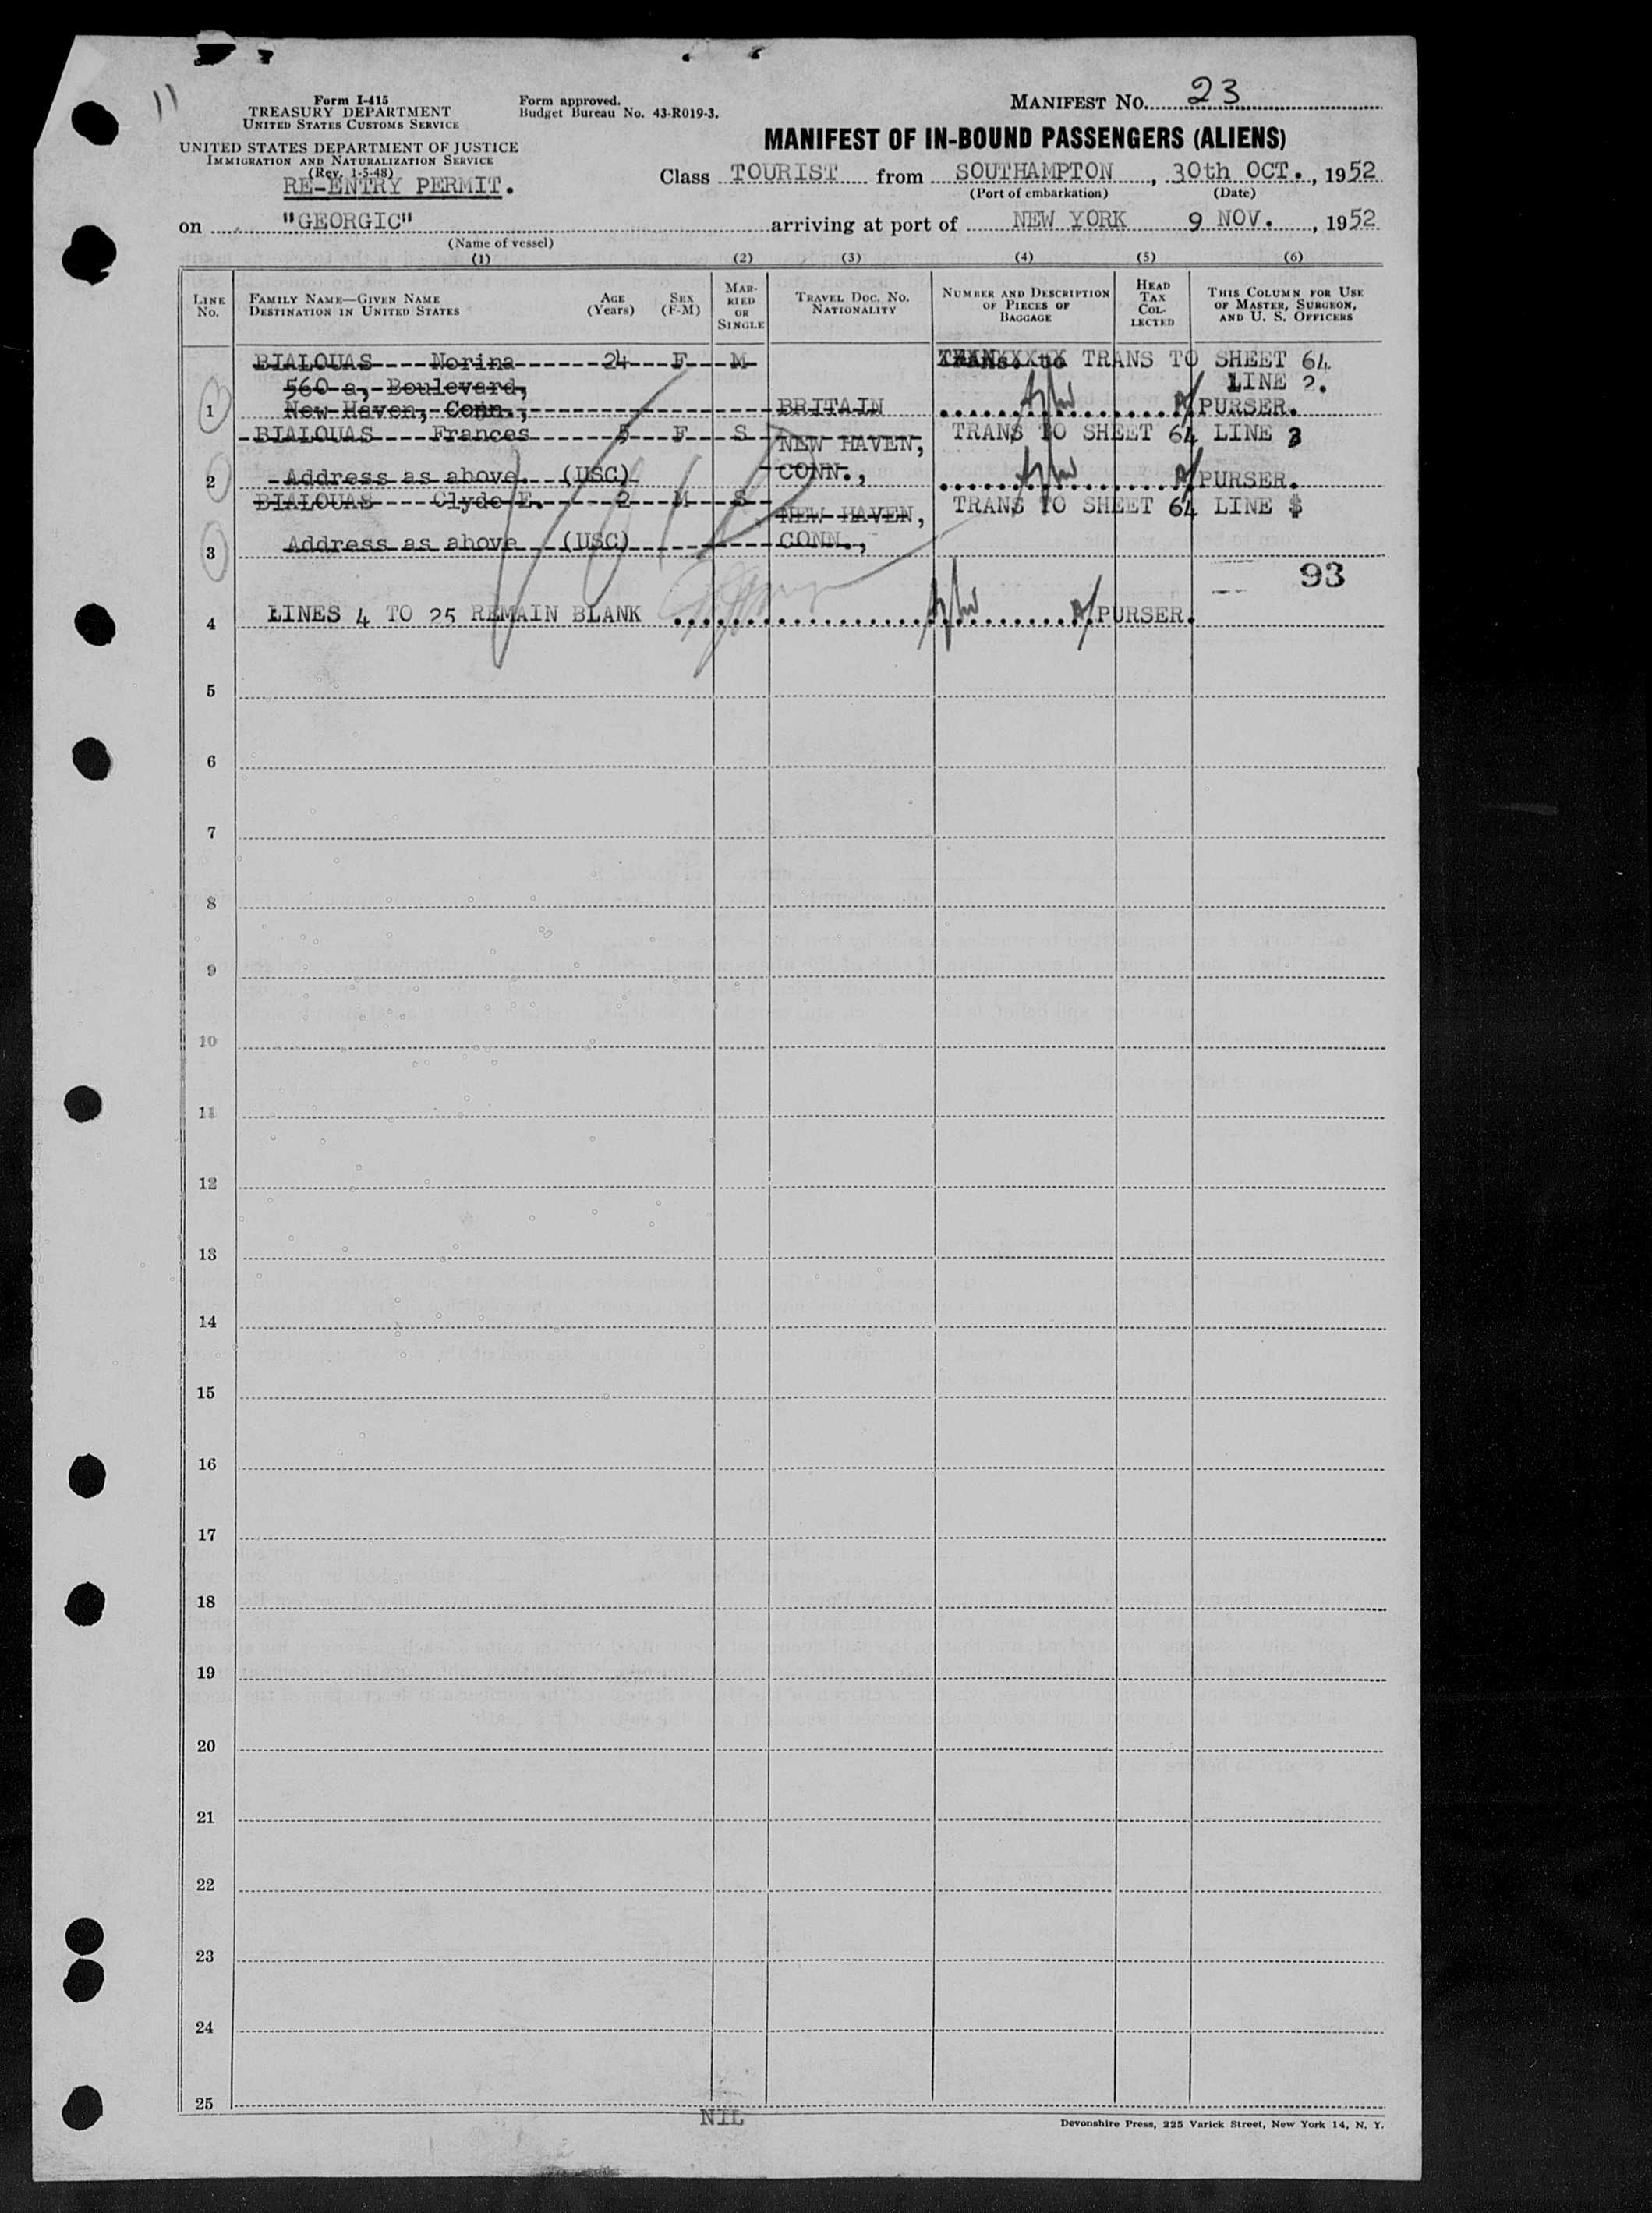 11
Form I-415
TREASURY DEPARTMENT
UNITED STATES CUSTOMS SERVICE
UNITED STATES DEPARTMENT OF JUSTICE
IMMIGRATION AND NATURALIZATION SERVICE
(Rev. 1-5-48)
RE-ENTRY PERMIT.
Form approved.
Budget Bureau No. 43-R019-3.
MANIFEST NO. 23
MANIFEST OF IN-BOUND PASSENGERS (ALIENS)
Class TOURIST from SOUTHAMPTON, 30th OCT., 1952
(Port of embarkation) (Date)
on "GEORGIC" arriving at port of NEW YORK 9 NOV., 1952
(Name of vessel)
(1) (2) (3) (4) (5) (6)
LINE NO.
FAMILY NAME—GIVEN NAME
DESTINATION IN UNITED STATES
AGE (Years)
SEX (F-M)
MARRIED OR SINGLE
TRAVEL DOC. NO. NATIONALITY
NUMBER AND DESCRIPTION OF PIECES OF BAGGAGE
HEAD TAX COLLECTED
THIS COLUMN FOR USE OF MASTER, SURGEON, AND U. S. OFFICERS
BIALOUAS Norina 24 F M TRANS TO SHEET 64
560 a, Boulevard, LINE 2.
1 New Haven, Conn., BRITAIN A/PURSER.
BIALOUAS Frances 5 F S NEW HAVEN, TRANS TO SHEET 64 LINE 3
2 Address as above. (USC) CONN., A/PURSER.
BIALOUAS Clyde E. 2 M S NEW HAVEN, TRANS TO SHEET 64 LINE
3 Address as above (USC) CONN.,
93
4 LINES 4 TO 25 REMAIN BLANK A/PURSER.
5
6
7
8
9
10
11
12
13
14
15
16
17
18
19
20
21
22
23
24
25
NIL
Devonshire Press, 225 Varick Street, New York 14, N. Y.